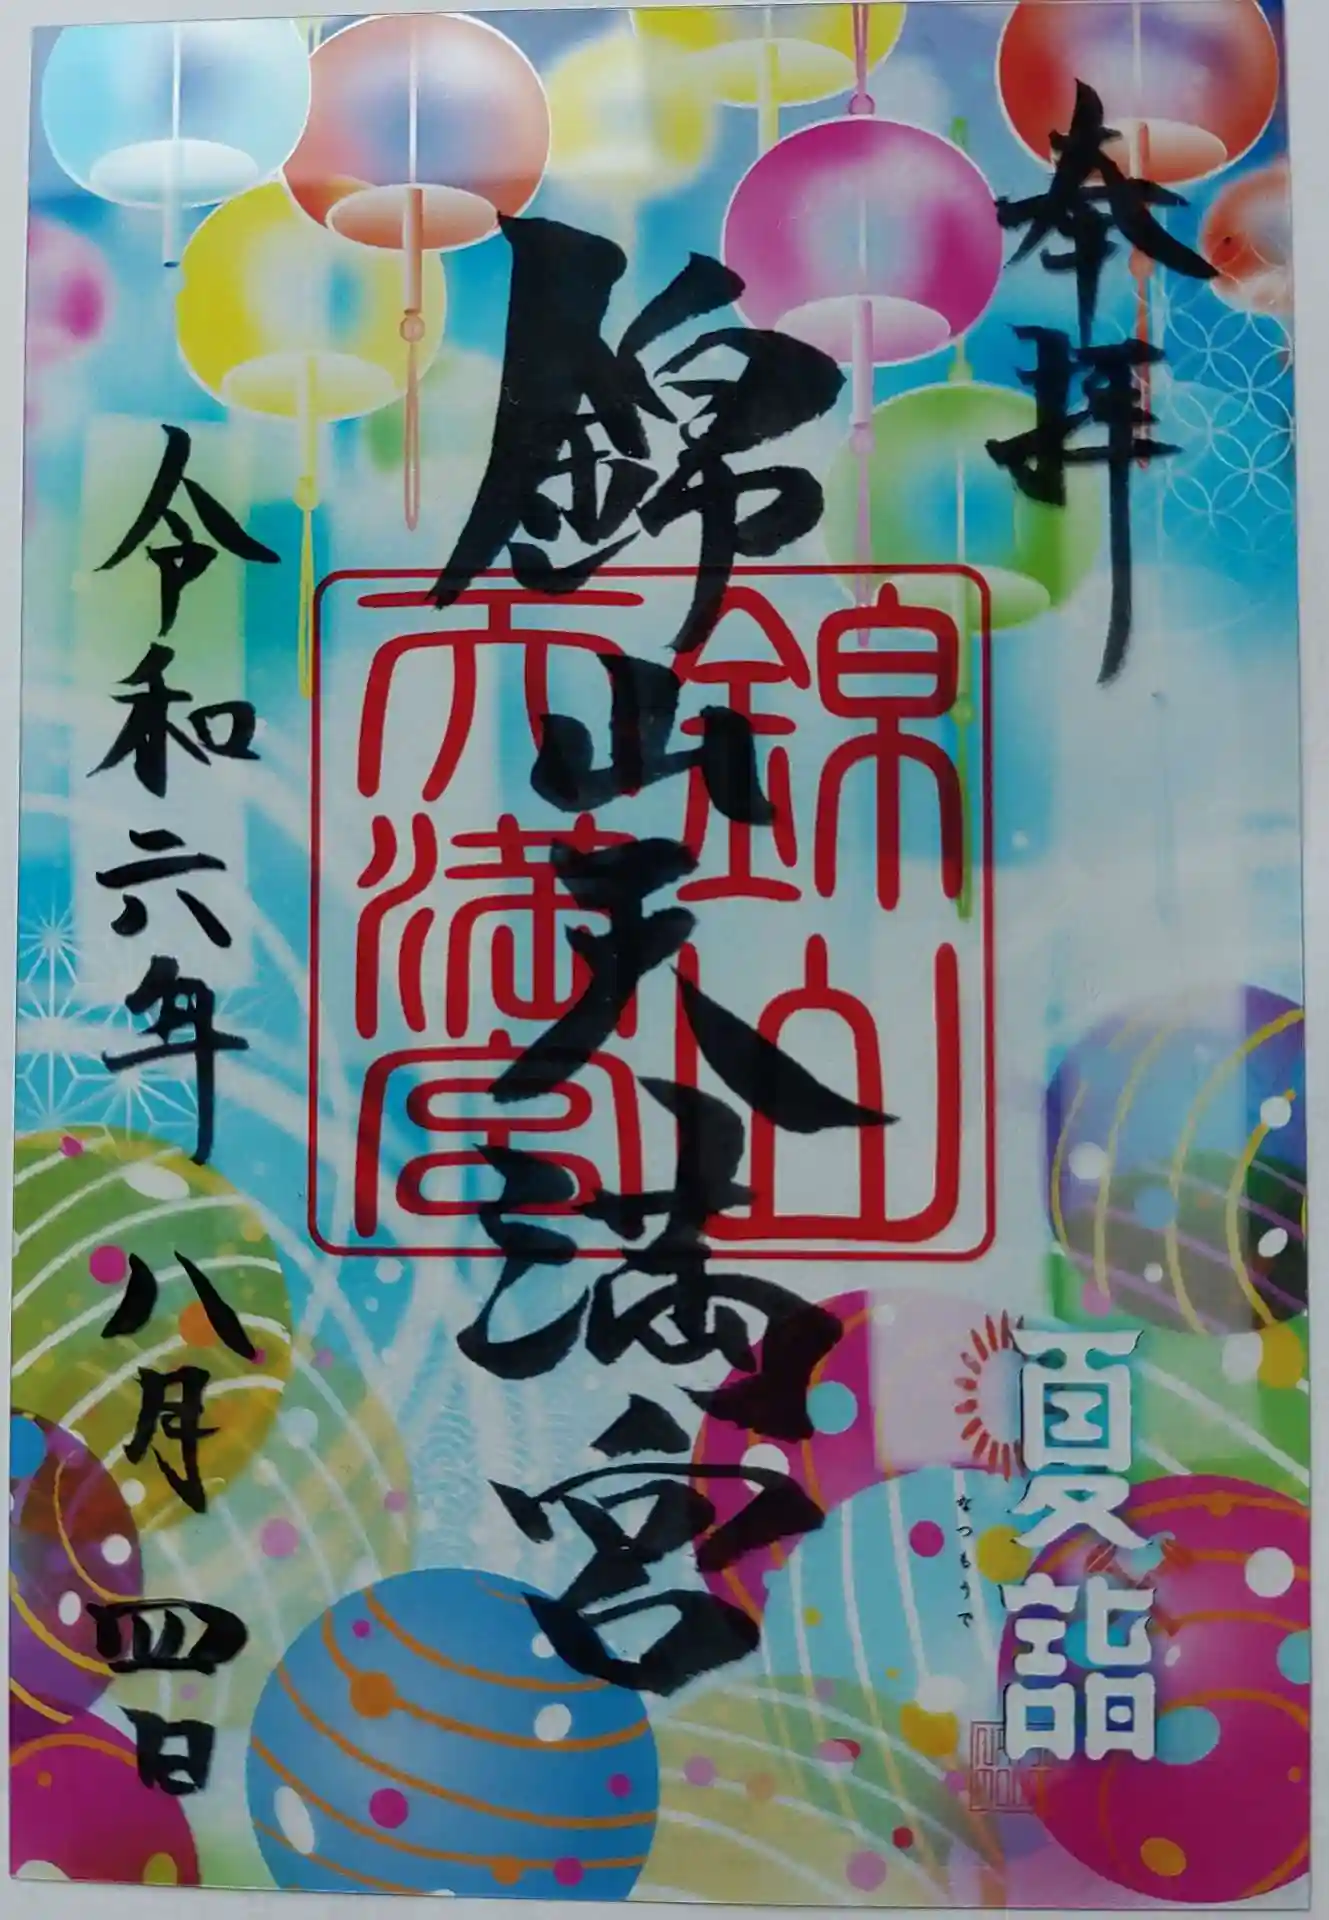 奉拝
夏詣
なつもうで
錦山天満宮
錦山
天満宮
令和六年八月四日